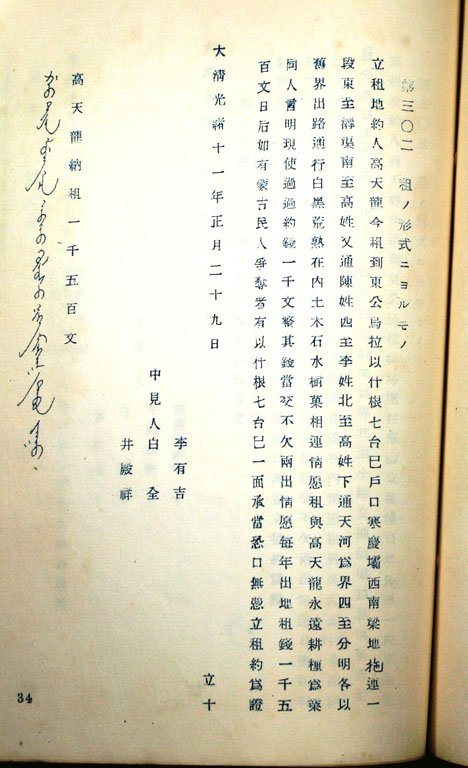 第三〇二 租ノ形式ニヨルモノ
立租地約人高天龍今租到東公烏拉以什根七台巳戶口寒慶壩西南梁地拖連一
段東至濠塄南至高姓又通陳姓西至李姓北至高姓下通天河爲界四至分明各以
舊界出路通行白黑荒熟在內土木石水樹菓相連情愿租與高天龍永遠耕種爲業
同人言明現使過過約錢一千文整其錢當交不欠兩出情愿每年出地租錢一千五
百文日后如有蒙古民人爭奪者有以什根七台巳一面承當恐口無憑立租約爲證
大淸光緒十一年正月二十九日 立十
李有吉
中見人白 全
井殿祥
高天龍納租一千五百文
34